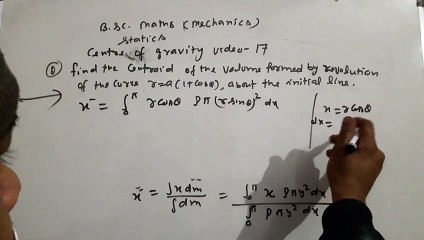 B.sc. maths (mechanics)
statics
Centre of gravity video-17
① find the centroid of the volume formed by revolution
of the curve r=a(1+cosθ), about the initial line.
x̄ = ∫₀^π r cosθ ρπ (r sinθ)² dx
x = r cosθ
dx =
x̄ = ∫x dm / ∫dm = ∫₀^π x ρπy² dx / ∫₀^π ρπy² dx